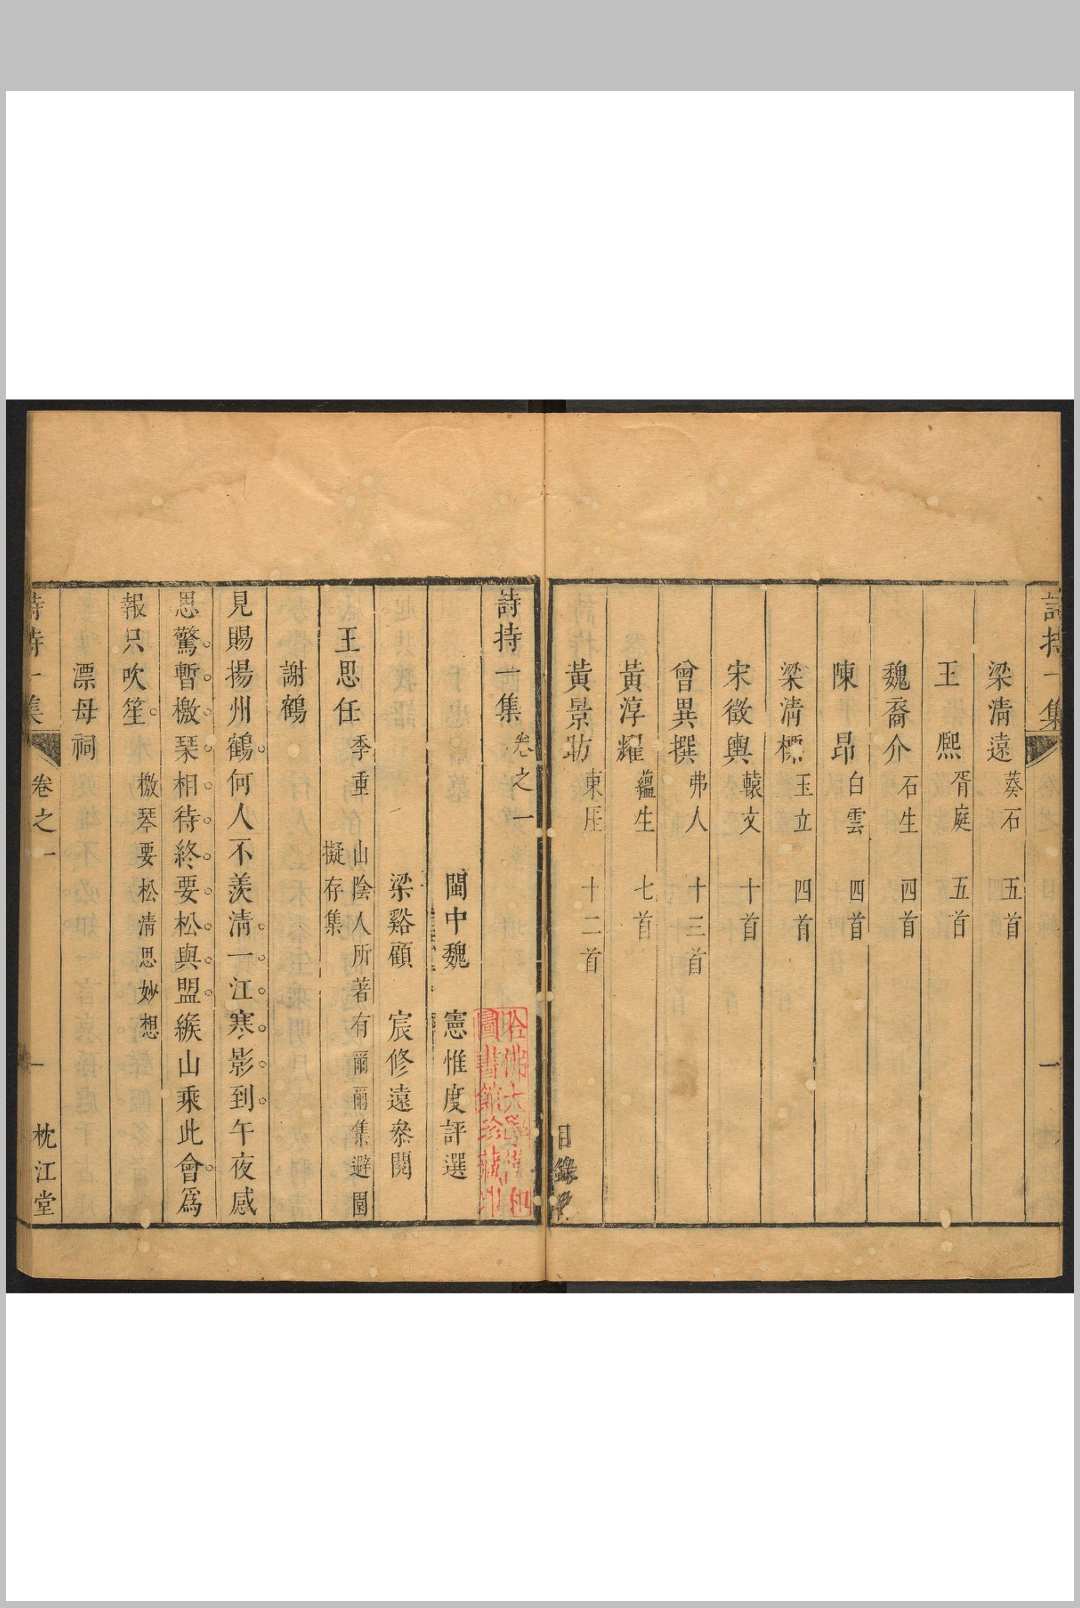 詩持一集
梁清遠 葵石 五首
王熈 胥庭 五首
魏裔介 石生 四首
陳昂 白雲 四首
梁清標 玉立 四首
宋徵輿 轅文 十首
曾異撰 弗人 十三首
黃淳耀 蘊生 七首
黃景昉 東厓 十二首
目錄
詩持一集 卷之一
閩中魏 憲惟度評選
梁谿顧 宸修遠叅閱
王思任 季重 山陰人所著有爾爾集避園擬存集
謝鶴
見賜揚州鶴何人不羨清一江寒影到午夜感
恩驚暫檄琹相待終要松與盟緱山乘此會爲
報只吹笙 檄琴要松清思妙想
漂母祠
詩持一集 卷之一 一 枕江堂
哈佛大學漢和圖書館珍藏印